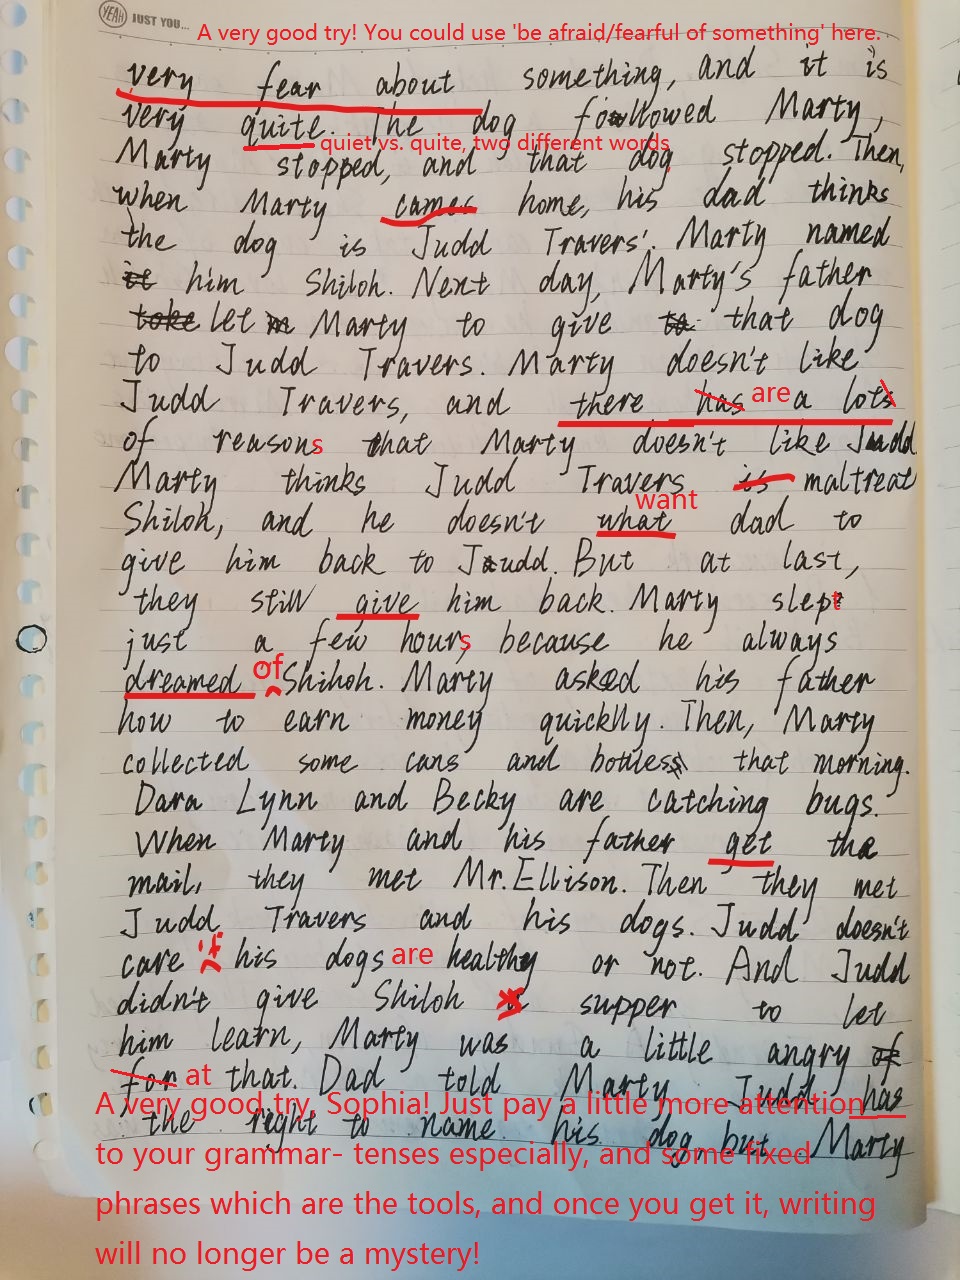 YEAH JUST YOU...
A very good try! You could use 'be afraid/fearful of something' here.
very fear about something, and it is
very quite. The dog followed Marty,
quiet vs. quite, two different words
Marty stopped, and that dog stopped. Then,
when Marty cames home, his dad thinks
the dog is Judd Travers'. Marty named
it him Shiloh. Next day, Marty's father
take let Marty to give to that dog
to Judd Travers. Marty doesn't like
Judd Travers, and there has are a lots
of reasons that Marty doesn't like Judd
Marty thinks Judd Travers is maltreat
want
Shiloh, and he doesn't what dad to
give him back to Judd. But at last,
they still give him back. Marty slept
just a few hours because he always
dreamed of Shihoh. Marty asked his father
how to earn money quicklly. Then, Marty
collected some cans and bottless that morning.
Dara Lynn and Becky are catching bugs.
When Marty and his father get the
mail, they met Mr. Ellison. Then they met
Judd Travers and his dogs. Judd doesn't
care if his dogs are healthy or not. And Judd
didn't give Shiloh supper to let
him learn, Marty was a little angry of
for at that. Dad told Marty Judd has
A very good try, Sophia! Just pay a little more attention
the right to name his dog, but Marty
to your grammar- tenses especially, and some fixed
phrases which are the tools, and once you get it, writing
will no longer be a mystery!